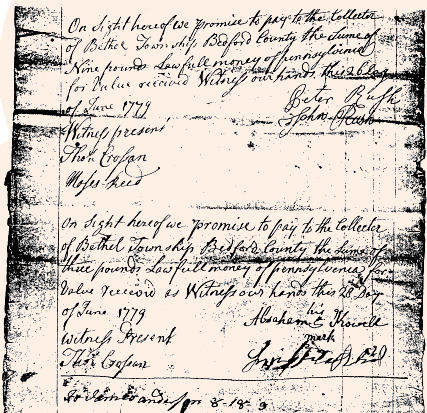 On Sight hereof we Promise to pay to the Collector
of Bethel Township Bedford County the Sume of
Nine pounds Lawfull money of pennsylvania
for Value received Witness our hands this 26 Day
of June 1779
Peter Bush
John
Witness present
Tho Crossan
Moses Reed
On Sight hereof we Promise to pay to the Collector
of Bethel Township Bedford County the Sume of
three pounds Lawfull money of pennsylvania for
Value received as Witness our hands this 26 Day
of June 1779
his
Abraham Powell
mark
Witness Present
Tho Crossan
8-18-9